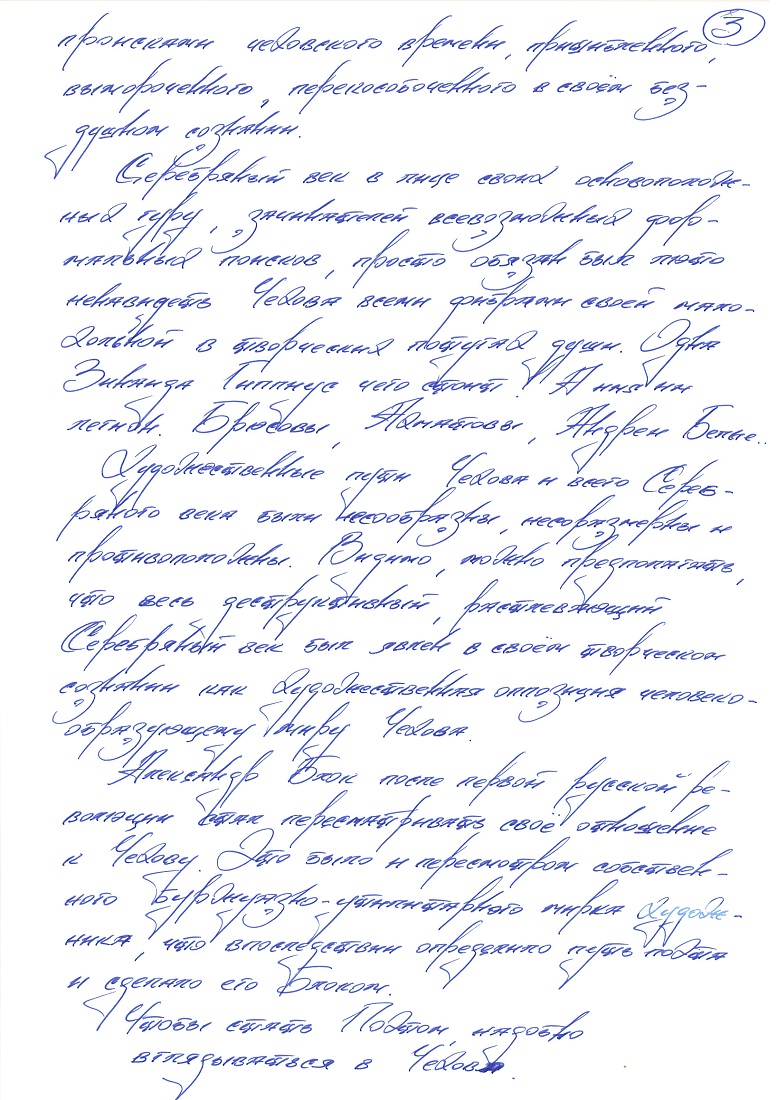 3
происками чеховского времени, пришибленного,
вымороченного, перекособоченного в своём без-
душном сознании.
Серебряный век в лице своих основополож-
ных гуру, зачинателей всевозможных фор-
мальных поисков, просто обязан был люто
ненавидеть Чехова всеми фибрами своей мало-
хольной в творческих потугах души. Одна
Зинаида Гиппиус чего стоит! А имя им
легион. Брюсовы, Ахматовы, Андреи Белые..
Художественные пути Чехова и всего Сереб-
ряного века были несообразны, несоразмерны и
противоположны. Видимо, можно предполагать,
что весь деструктивный, растлевающий
Серебряный век был явлен в своём творческом
сознании как художественная оппозиция человеко-
образующему миру Чехова.
Александр Блок после первой русской ре-
волюции стал пересматривать своё отношение
к Чехову. Это было и пересмотром собствен-
ного буржуазно-утилитарного мирка худож-
ника, что впоследствии определило путь поэта
и сделало его Блоком.
Чтобы стать Поэтом, надобно
вглядываться в Чехова.